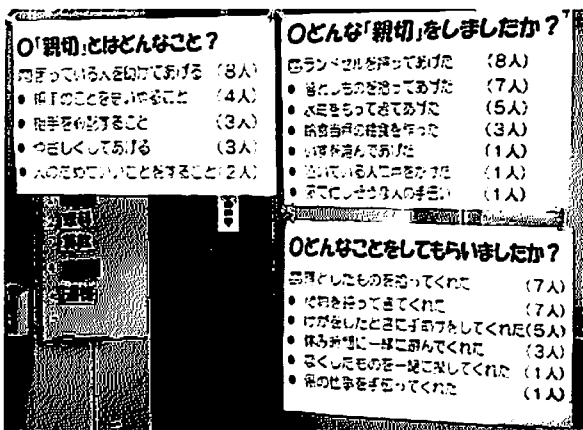 ○「親切」とはどんなこと？
困っている人を助けてあげる （8人）
● 相手のことを思いやること （4人）
● 相手を心配すること （3人）
● やさしくしてあげる （3人）
● 人のためにいいことをすること（2人）
○どんな「親切」をしましたか？
ランドセルを持ってあげた （8人）
● 落としものを拾ってあげた （7人）
● もってきてあげた （5人）
● 給食当番の給食を作った （3人）
● いすを運んであげた （1人）
● 泣いている人に声をかけた （1人）
● 人の手伝い （1人）
○どんなことをしてもらいましたか？
落としたものを拾ってくれた （7人）
● 持ってきてくれた （7人）
● けがをしたときに手助けをしてくれた（5人）
● 休み時間に一緒に遊んでくれた （3人）
● なくしたものを一緒に探してくれた （1人）
● 係の仕事を手伝ってくれた （1人）
算数